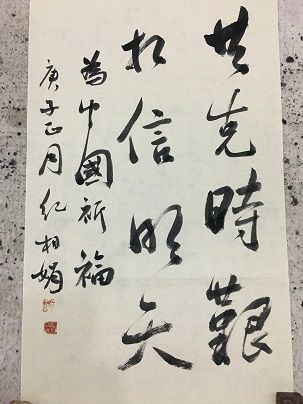 共克時艱
相信明天
為中國祈福
庚子正月紀相娟